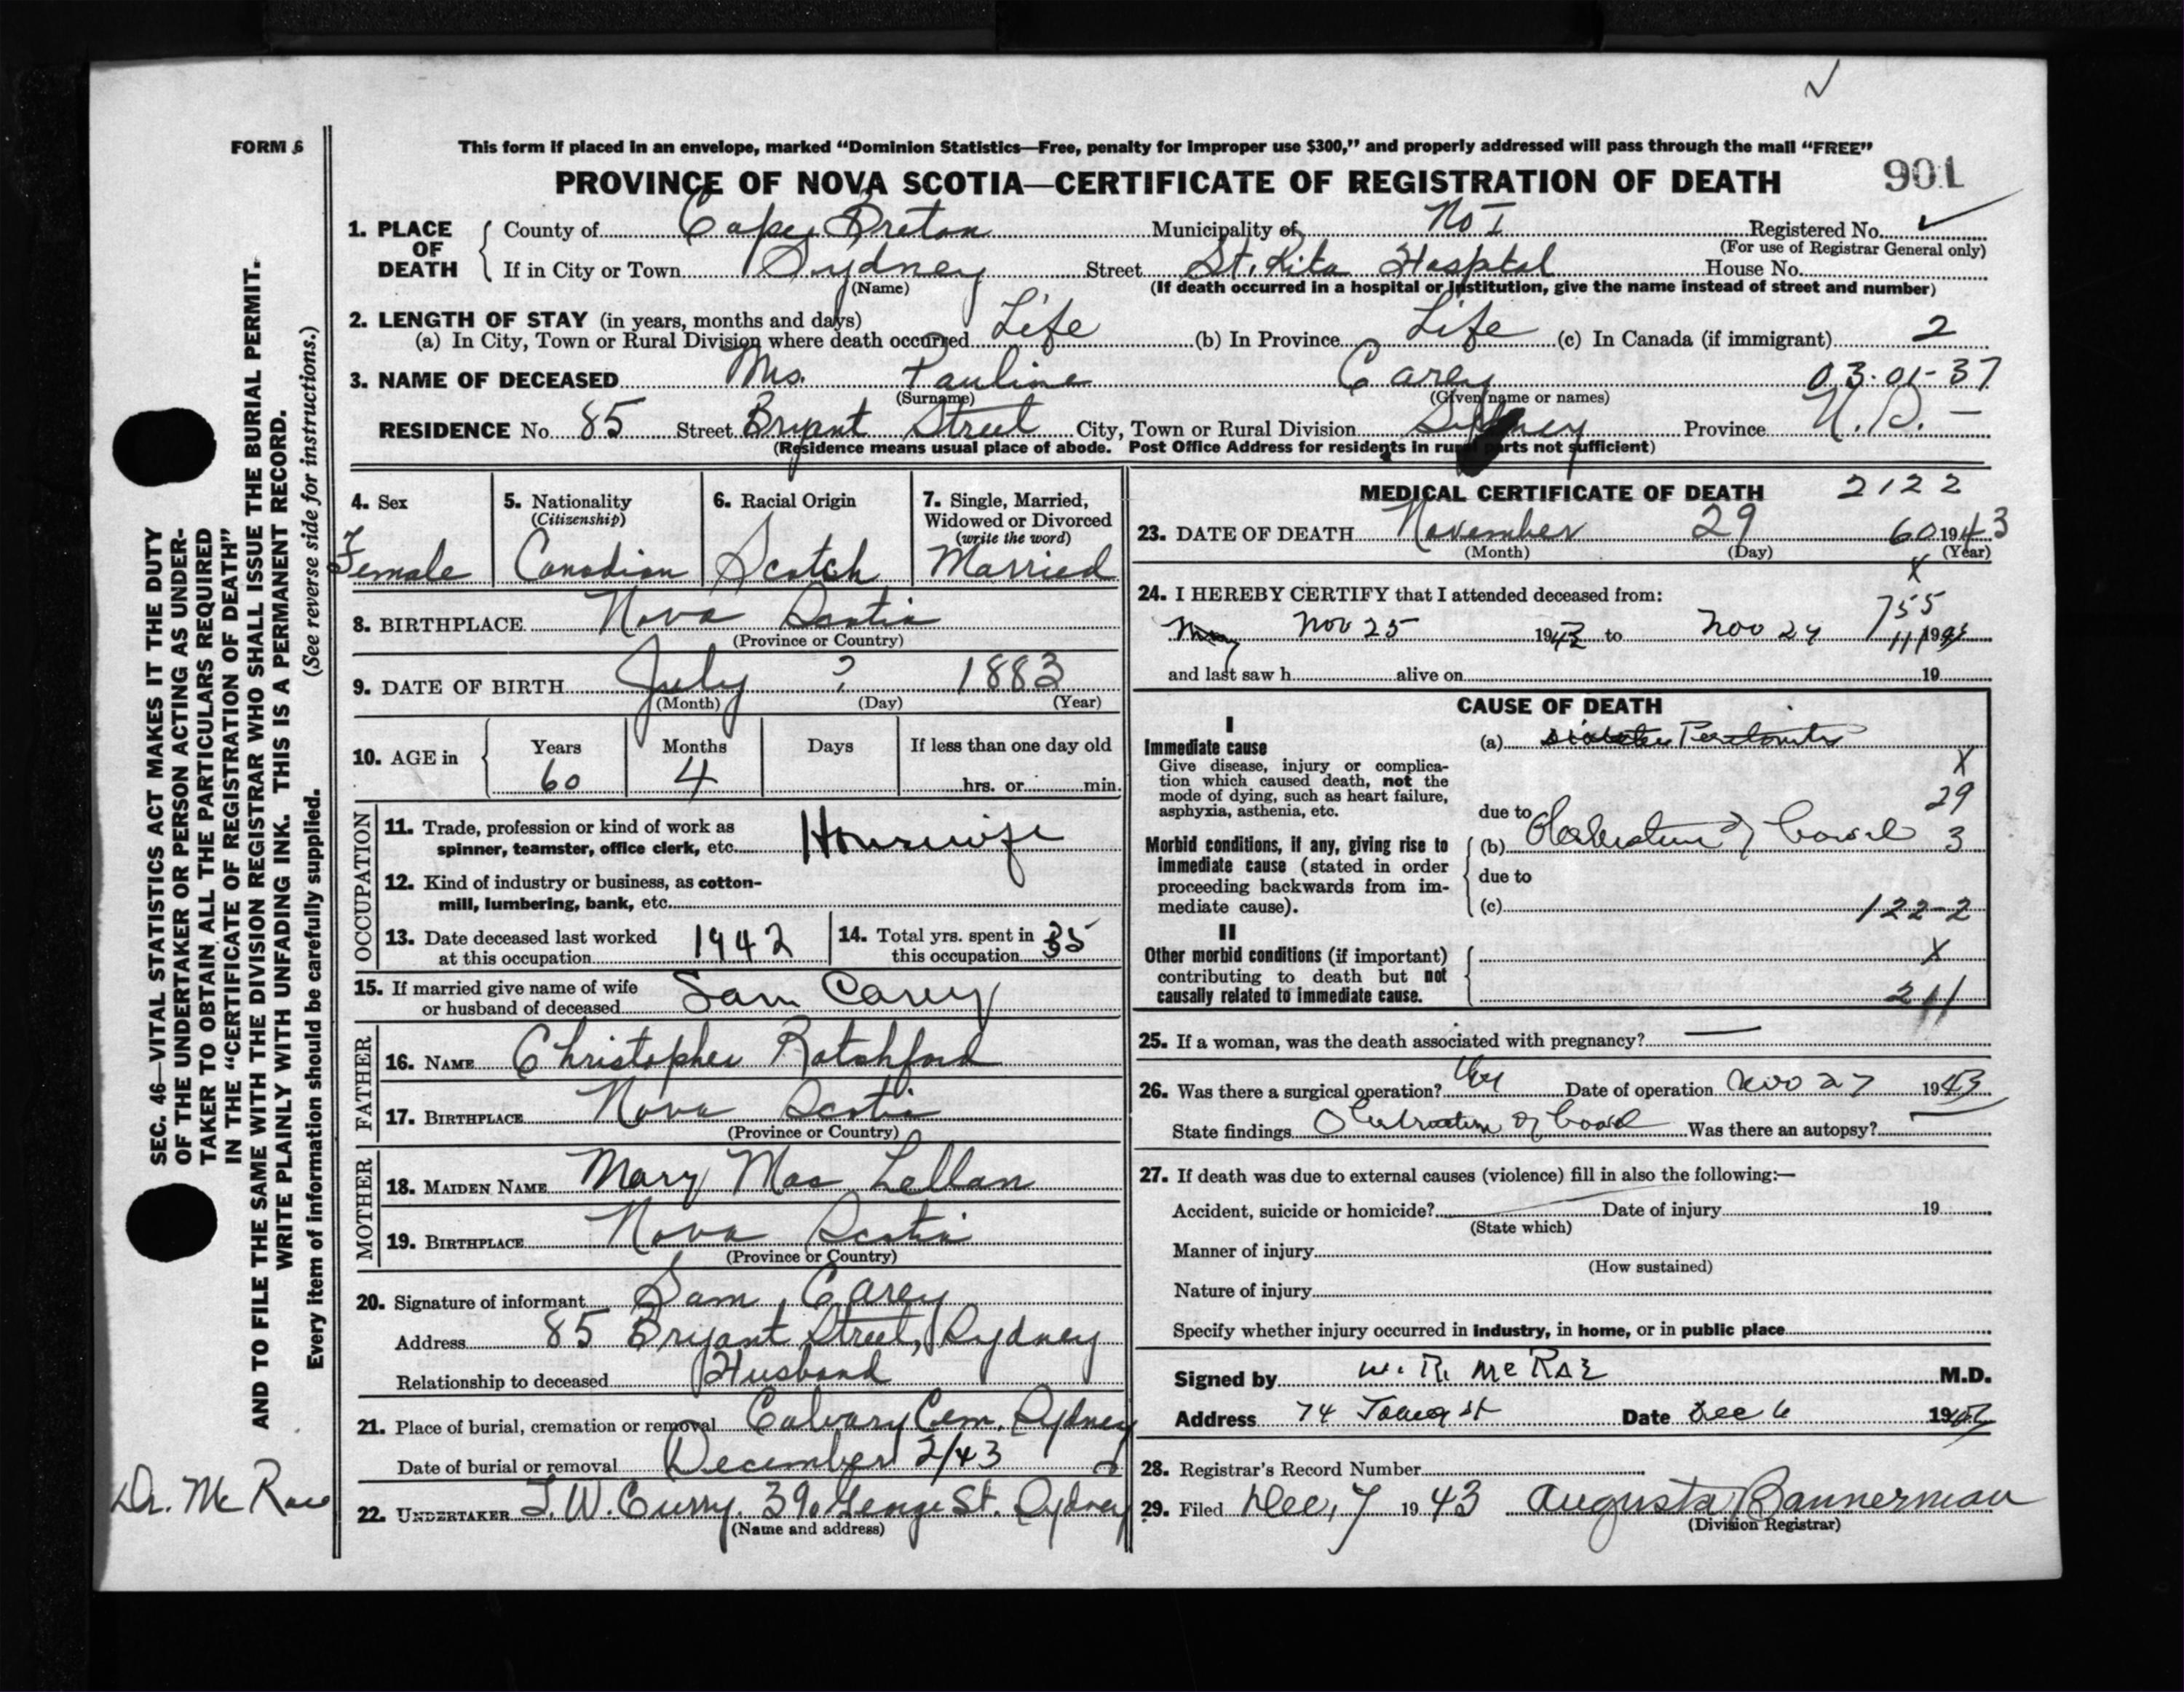 ✓
FORM 6
This form if placed in an envelope, marked “Dominion Statistics—Free, penalty for improper use $300,” and properly addressed will pass through the mail “FREE”
PROVINCE OF NOVA SCOTIA—CERTIFICATE OF REGISTRATION OF DEATH 901
1. PLACE OF DEATH County of Cape Breton Municipality of No I Registered No. ✓
(For use of Registrar General only)
If in City or Town Sydney Street St. Rita Hosptal House No.
(Name) (If death occurred in a hospital or institution, give the name instead of street and number)
2. LENGTH OF STAY (in years, months and days)
(a) In City, Town or Rural Division where death occurred Life (b) In Province Life (c) In Canada (if immigrant) 2
3. NAME OF DECEASED Mrs. Pauline Carey 03-01-37
(Surname) (Given name or names)
RESIDENCE No. 85 Street Bryant Street City, Town or Rural Division Sydney Province N.S.
(Residence means usual place of abode. Post Office Address for residents in rural parts not sufficient)
4. Sex 5. Nationality 6. Racial Origin 7. Single, Married,
(Citizenship) Widowed or Divorced
(write the word)
Female Canadian Scotch Married
8. BIRTHPLACE Nova Scotia
(Province or Country)
9. DATE OF BIRTH July ? 1883
(Month) (Day) (Year)
10. AGE in Years Months Days If less than one day old
60 4 hrs. or min.
OCCUPATION
11. Trade, profession or kind of work as
spinner, teamster, office clerk, etc. Housewife
12. Kind of industry or business, as cotton-
mill, lumbering, bank, etc.
13. Date deceased last worked 14. Total yrs. spent in
at this occupation 1942 this occupation 35
15. If married give name of wife
or husband of deceased Sam Carey
FATHER
16. NAME Christopher Ratchford
17. BIRTHPLACE Nova Scotia
(Province or Country)
MOTHER
18. MAIDEN NAME Mary Mac Lellan
19. BIRTHPLACE Nova Scotia
(Province or Country)
20. Signature of informant Sam Carey
Address 85 Bryant Street, Sydney
Relationship to deceased Husband
21. Place of burial, cremation or removal Calvary Cem. Sydney
Date of burial or removal December 2/43
22. UNDERTAKER T. W. Curry. 390 George St. Sydney
(Name and address)
MEDICAL CERTIFICATE OF DEATH 2122
23. DATE OF DEATH November 29 60 1943
(Month) (Day) (Year)
X
24. I HEREBY CERTIFY that I attended deceased from:
755
Nov 25 1943 to Nov 29 11 1943
and last saw h alive on 19
CAUSE OF DEATH
I
Immediate cause (a) Peritonitis
Give disease, injury or complica-
tion which caused death, not the
mode of dying, such as heart failure,
asphyxia, asthenia, etc.
X
29
due to
Morbid conditions, if any, giving rise to (b) Obstruction of bowel 3
immediate cause (stated in order
proceeding backwards from im-
mediate cause).
due to
(c) 122-2
II
Other morbid conditions (if important) X
contributing to death but not
causally related to immediate cause. 211
25. If a woman, was the death associated with pregnancy? —
26. Was there a surgical operation? Yes Date of operation Nov 27 1943
State findings Obstruction of bowel Was there an autopsy? —
27. If death was due to external causes (violence) fill in also the following:—
Accident, suicide or homicide? Date of injury 19
(State which)
Manner of injury
(How sustained)
Nature of injury
Specify whether injury occurred in industry, in home, or in public place
Signed by W. R. McRae M.D.
Address 74 Date Dec 6 19
28. Registrar's Record Number
29. Filed Dec, 7 1943 Augusta Bannerman
(Division Registrar)
SEC. 46—VITAL STATISTICS ACT MAKES IT THE DUTY
OF THE UNDERTAKER OR PERSON ACTING AS UNDER-
TAKER TO OBTAIN ALL THE PARTICULARS REQUIRED
IN THE “CERTIFICATE OF REGISTRATION OF DEATH”
AND TO FILE THE SAME WITH THE DIVISION REGISTRAR WHO SHALL ISSUE THE BURIAL PERMIT.
WRITE PLAINLY WITH UNFADING INK. THIS IS A PERMANENT RECORD.
Every item of information should be carefully supplied. (See reverse side for instructions.)
Dr. Mc Rae